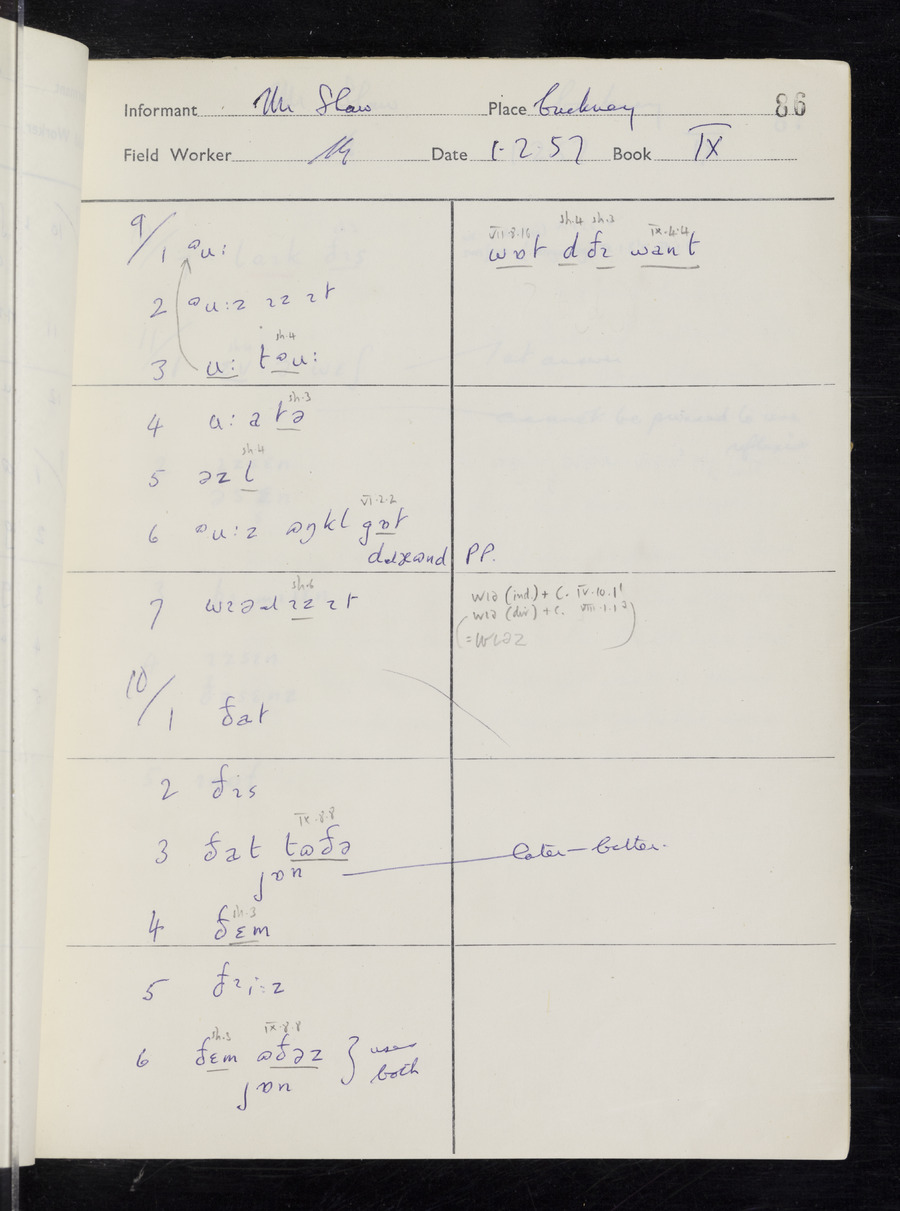 Informant Mr Shaw Place Cuckney 86
Field Worker Date 1·2·57 Book IX
9/1 ᵊu:
2 ᵊu:z ɪz ɪt
sh.4
3 u: tᵊu:
VII·8·16 sh.4 sh.3 IX·4·4
wɒt d ðɪ want
sh.3
4 u: a tə
sh.4
5 əz l
VI·2·2
6 ᵊu:z ɷŋkl gɒt
PP.
sh.6
7 ɪz ɪt
wɪə (ind.) + C. IV·10·1¹
wɪə (dir) + C. VIII·1·1²
(= wɪəz)
10/1 ðat
2 ðɪs
IX·8·8
3 ðat tɷðə
ʃɒn
later – better.
sh.3
4 ðɛm
5 ðɪ:z
sh.3 IX·8·8
6 ðɛm ɷðəz } uses
ʃɒn both